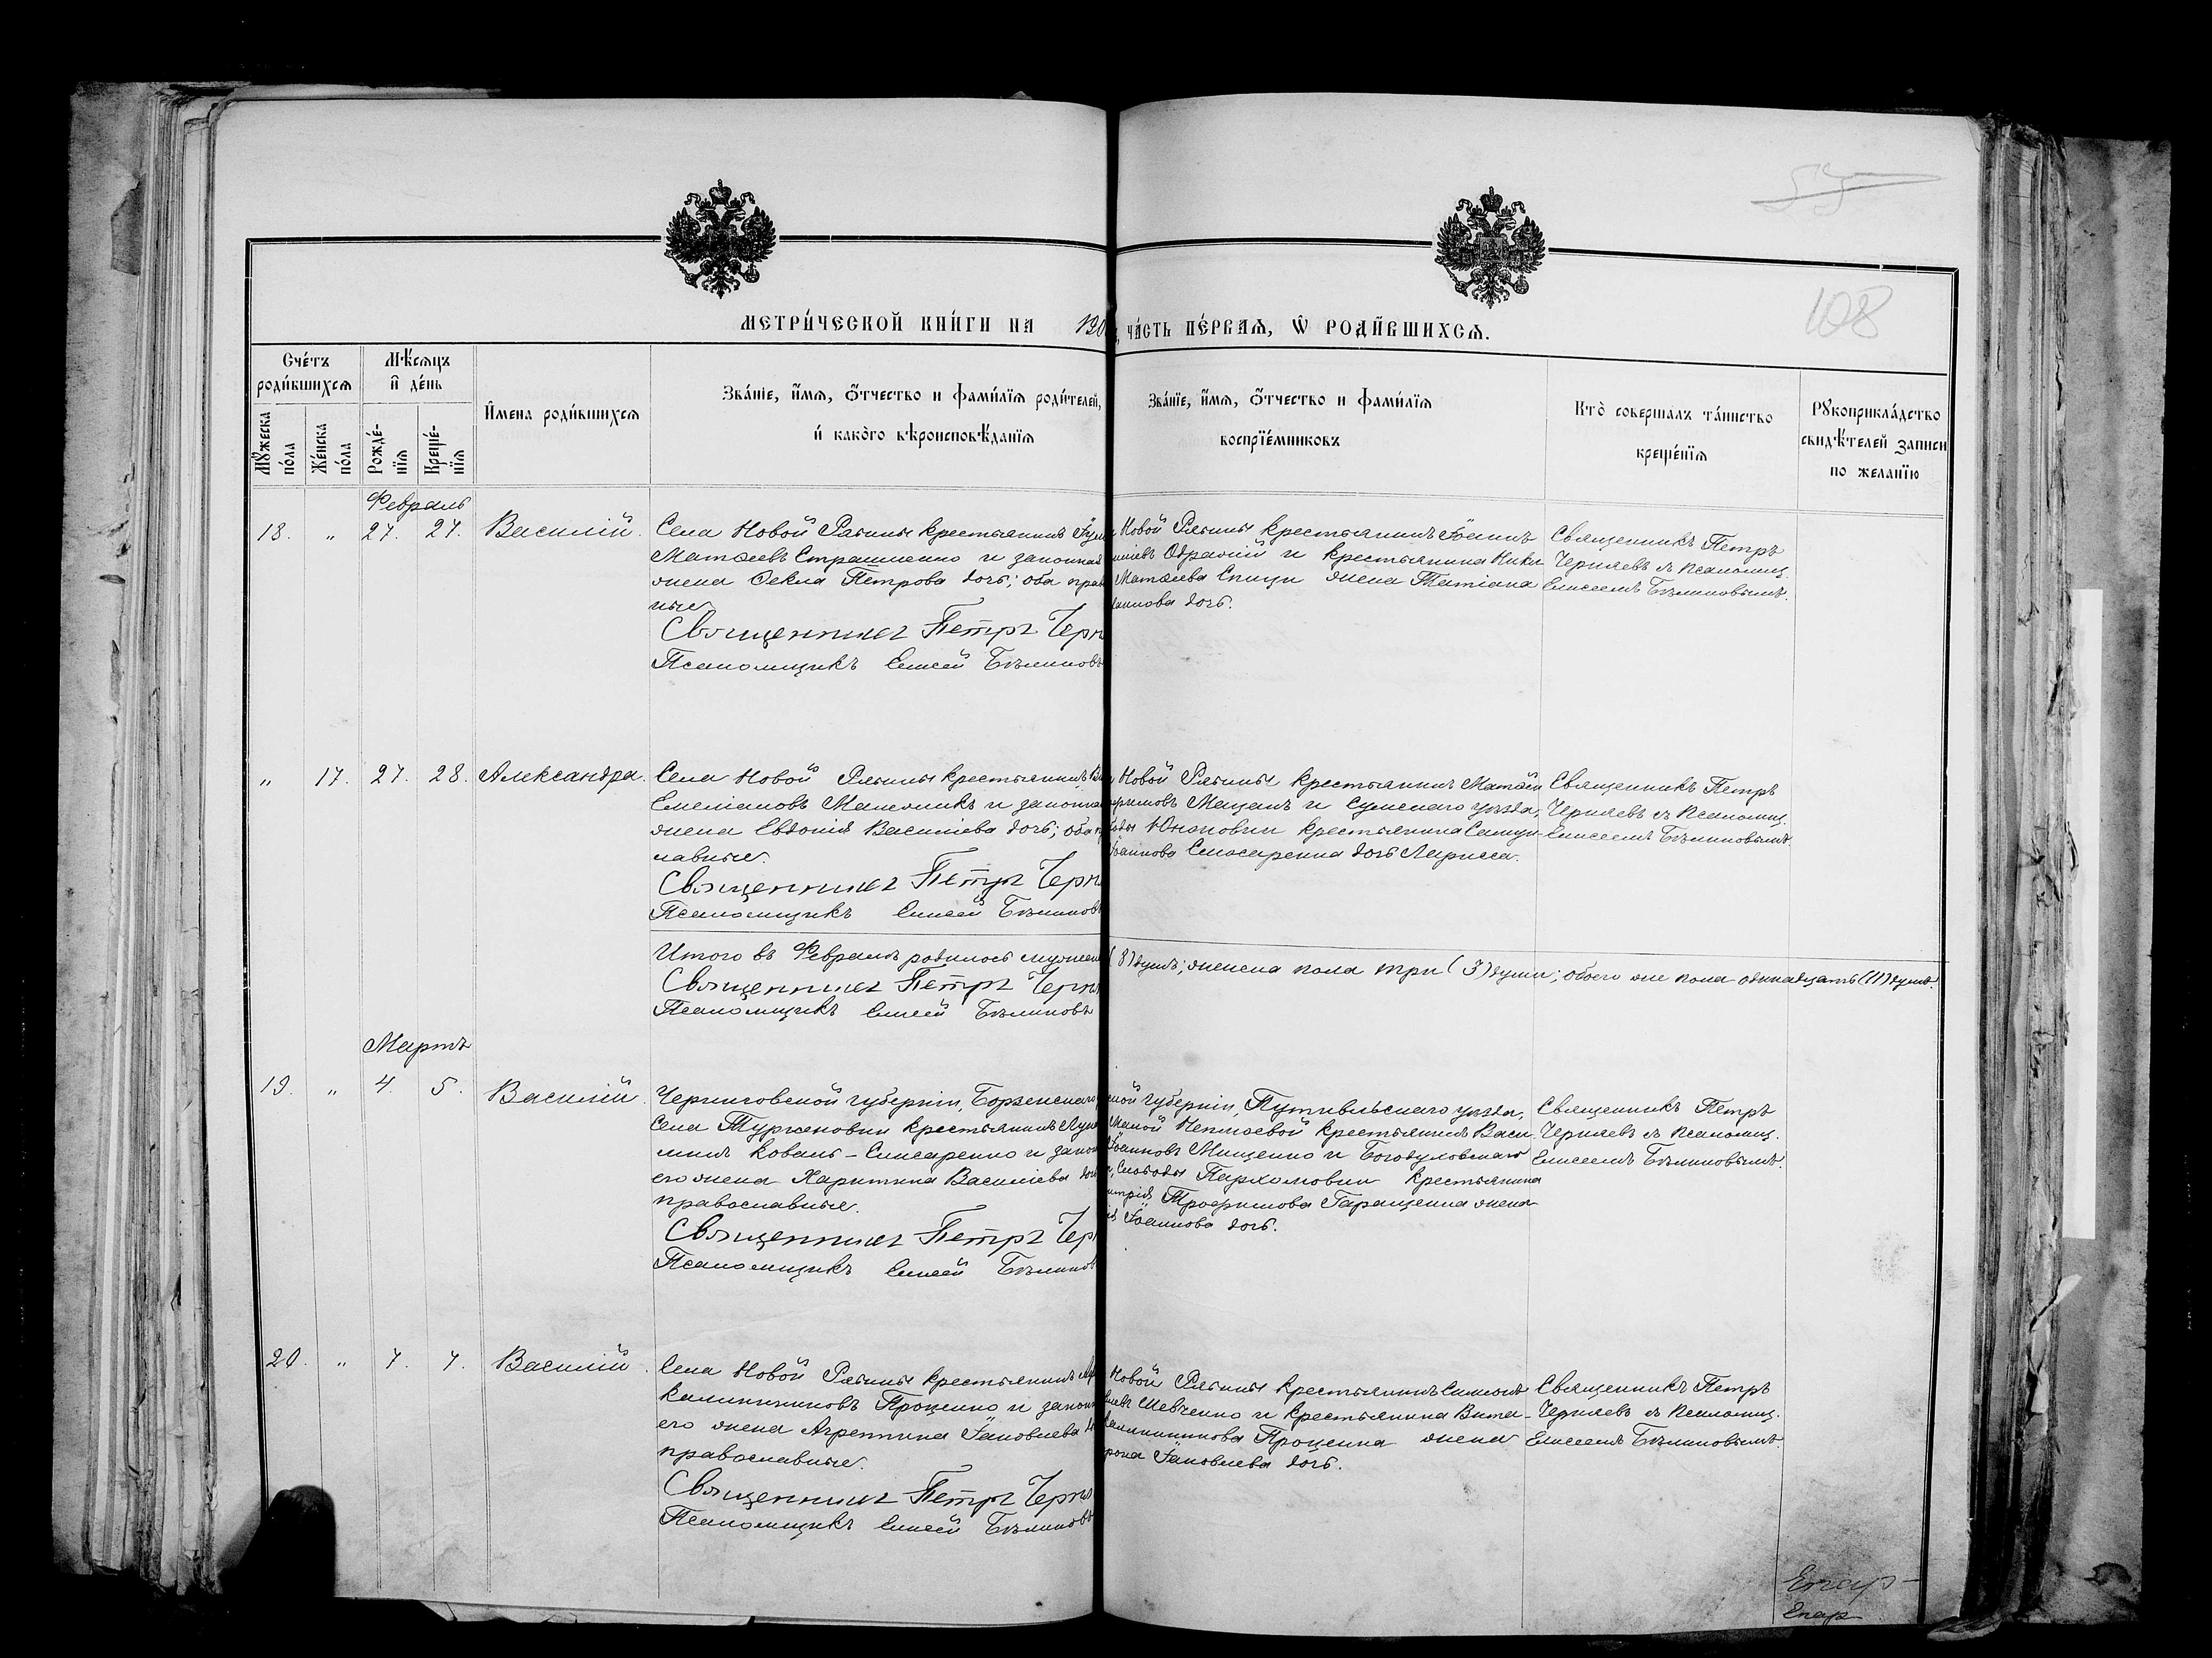 53
108
МЕТРИ́ЧЕСКОЙ КНИ́ГИ НА 190
ЧА́СТЬ ПЕ́РВАѦ, Ѡ РОДИ́ВШИХСѦ.
Сче́тъ родившихсѧ
Мѣ́сѧцъ и де́нь
Мꙋ́жеска по́ла
Же́нска по́ла
Рожде́нїѧ
Креще́нїѧ
И́мена роди́вшихсѧ
Зва́нїе, и́мѧ, ѻ́тчество и фами́лїѧ роди́телей,
и како́го вѣроисповѣ́данїѧ
Зва́нїе, и́мѧ, ѻ́тчество и фами́лїѧ
воспрїе́мниковъ
Кто̀ соверша́лъ та́инство
креще́нїѧ
Рꙋкоприкла́дство
свидѣ́телей записи
по желанїю
Февраль
18. " 27. 27. Василій.
Села Новой Рябины крестьянинъ
Матѳеевъ Страшненко и законная
жена Ѳекла Петрова дочь; оба прав
ные
Священникъ Петръ Черн
Псаломщикъ Елисей Бѣлиновъ
Новой Рябины крестьянинъ Іоаннъ
и крестьянина Ники
Матѳеева Спици жена Татіана
дочь.
Священникъ Петръ
Черняевъ съ псаломщ.
Елисеемъ Бѣлиновымъ.
" 17. 27. 28. Александра.
Села Новой Рябины крестьянинъ
Емеліановъ и законная
жена Евдокія Василіева дочь; оба п
лавные.
Священникъ Петръ Черн
Псаломщикъ Елисей Бѣлиновъ
Новой Рябины крестьянинъ Матѳей
Мацакъ и Сумскаго уѣзда,
Юнаковки крестьянина
Іоаннова Слюсаренка дочь Лариса.
Священникъ Петръ
Черняевъ съ псаломщ.
Елисеемъ Бѣлиновымъ.
Итого въ Февралѣ родилось мужеск
(8) душъ; женска пола три (3) души; обоего же пола одинадцать (11) душъ.
Священникъ Петръ Черн
Псаломщикъ Елисей Бѣлиновъ
Мартъ
19. " 4. 5. Василій.
Черниговской губерніи, Борзенскаго
села крестьянинъ
Коваль-Слисаренко и закон
его жена Харитина Василіева дочь
православные.
Священникъ Петръ Чер
Псаломщикъ Елисей Бѣлинов
ской губерніи, Путивльскаго уѣзда,
Малой Неплюевой крестьянинъ Васи
Іоанновъ Мищенко и Богодуховскаго
Слободы Пархомовки крестьянина
Трофимова Гаращенка жена
Іоаннова дочь.
Священникъ Петръ
Черняевъ съ псаломщ.
Елисеемъ Бѣлиновымъ.
20. " 7. 7. Василій.
Села Новой Рябины крестьянинъ
Калинниковъ Проценко и закон
его жена Агрепина Іаковлева
православные.
Священникъ Петръ Черня
Псаломщикъ Елисей Бѣлиновъ
Новой Рябины крестьянинъ Симеонъ
Шевченко и крестьянина
Калинникова Проценка жена
Іаковлева дочь.
Священникъ Петръ
Черняевъ съ псаломщ.
Елисеемъ Бѣлиновымъ.
Епар